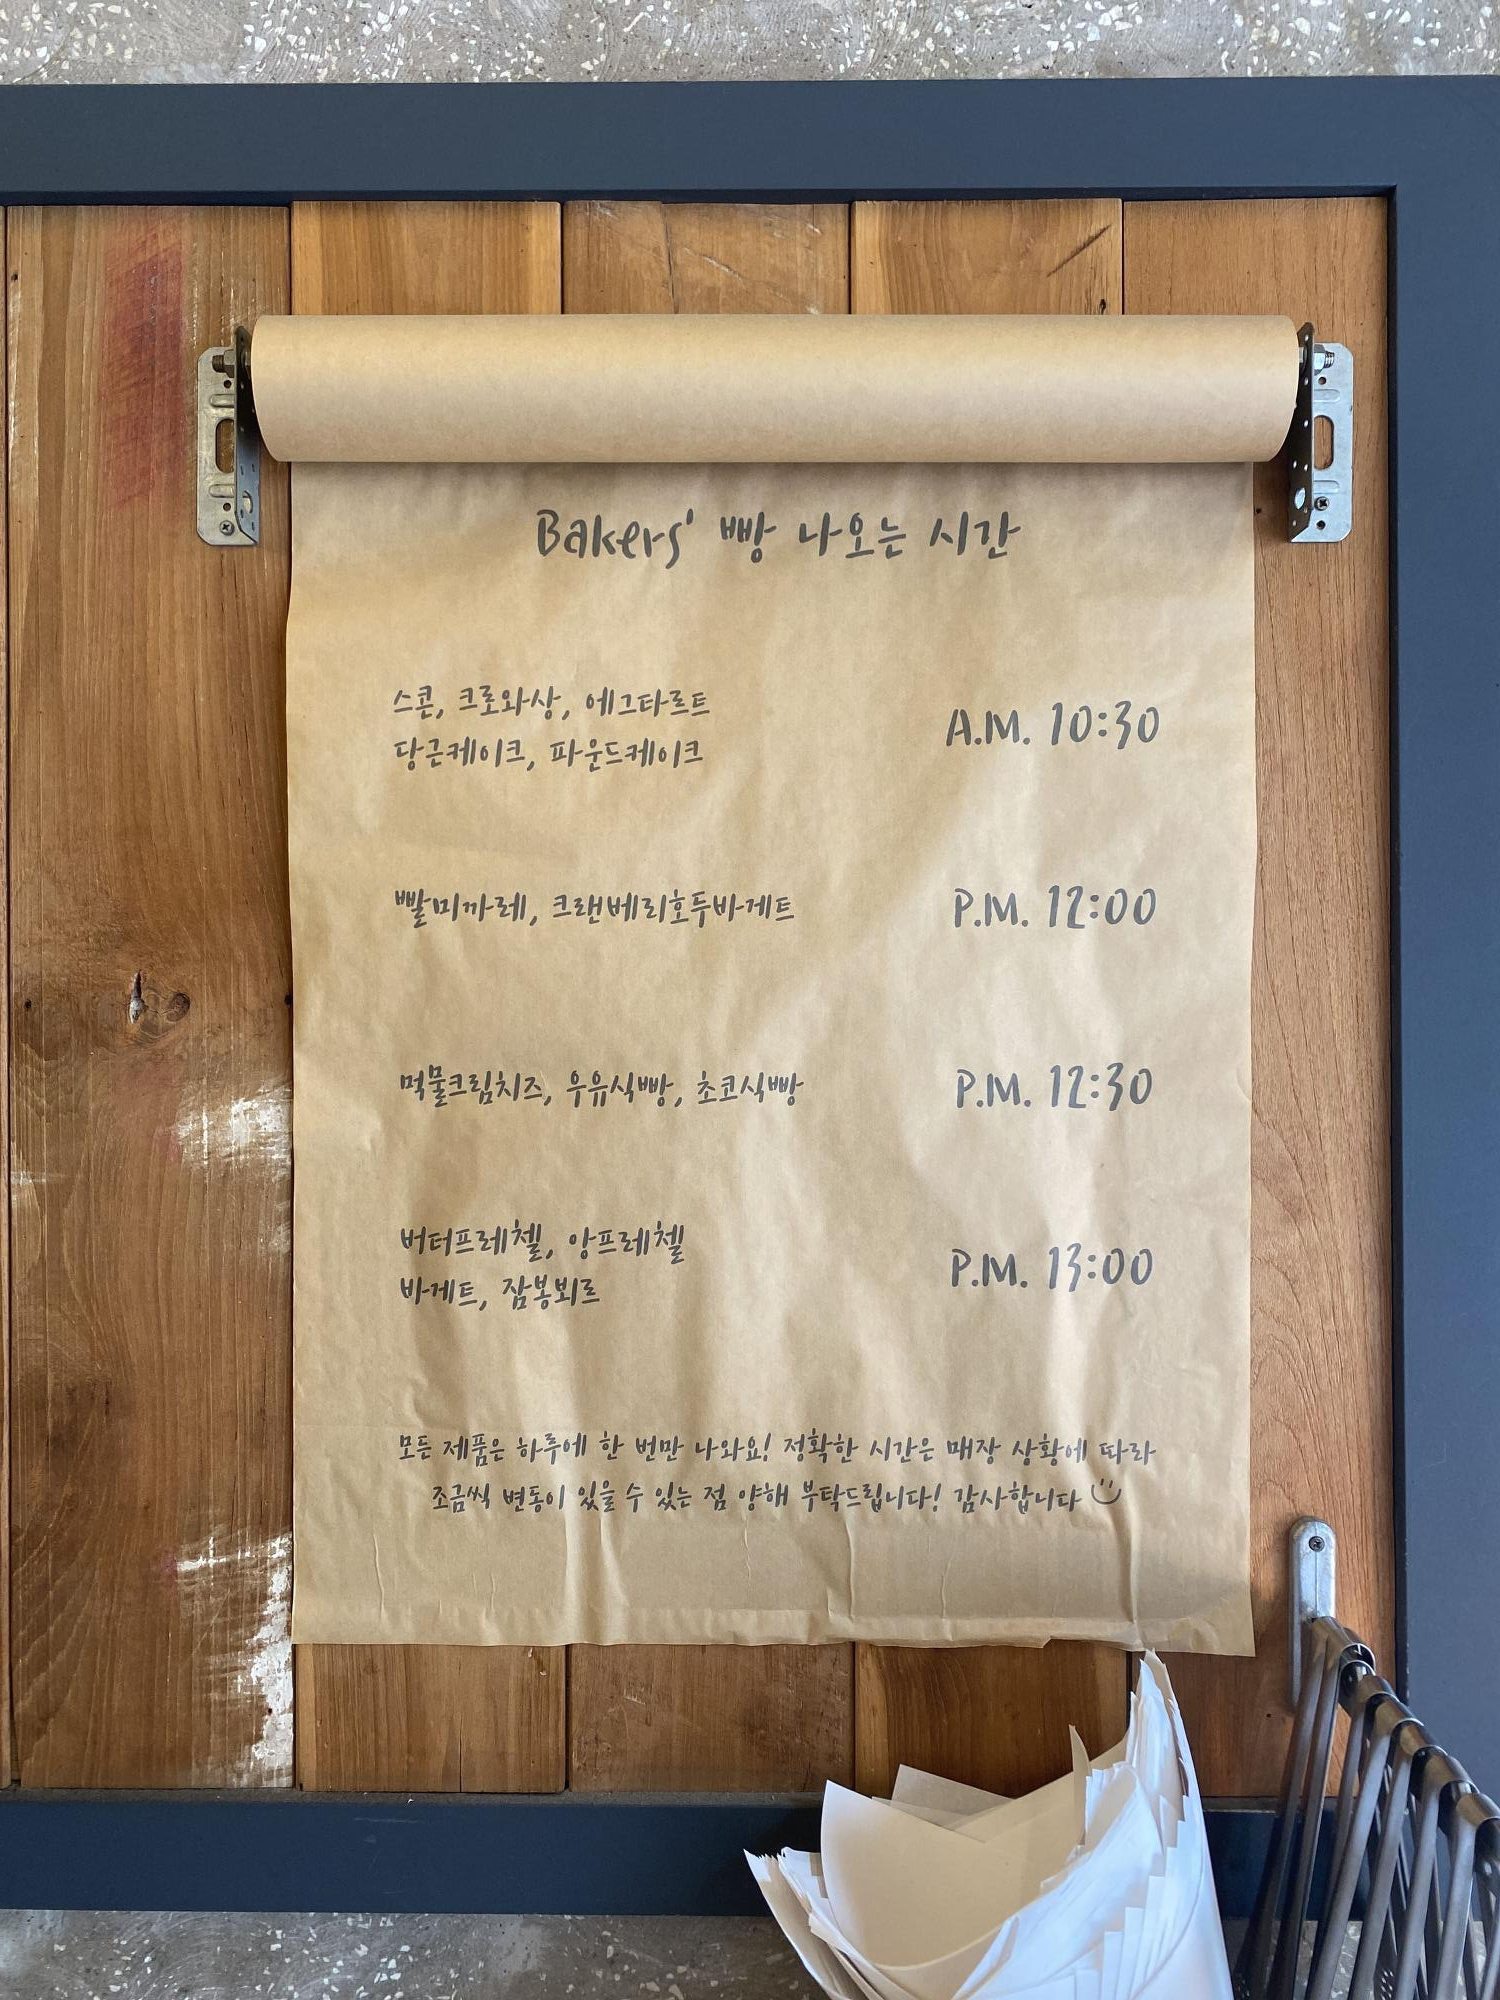 Bakers' 빵 나오는 시간
스콘, 크로와상, 에그타르트
당근케이크, 파운드케이크
A.M. 10:30
빨미까레, 크랜베리호두바게트
P.M. 12:00
먹물크림치즈, 우유식빵, 초코식빵
P.M. 12:30
버터프레첼, 앙프레첼
바게트, 잠봉뵈르
P.M. 13:00
모든 제품은 하루에 한 번만 나와요! 정확한 시간은 매장 상황에 따라
조금씩 변동이 있을 수 있는 점 양해 부탁드립니다! 감사합니다